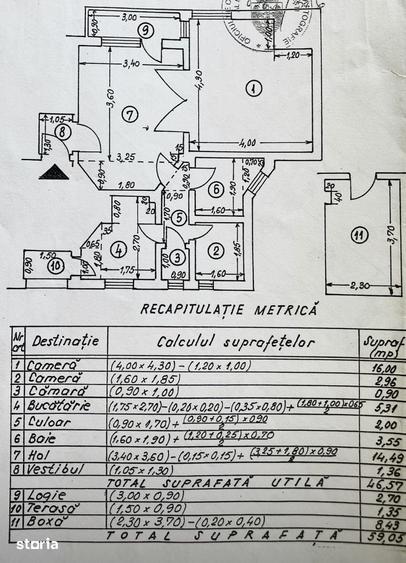 3,00
0,90
9
3,40
4,30
1,00
1,20
1
3,60
7
4,00
1,05
8
1,30
3,25
0,90
1,80
0,90
0,70
1,20
1,90
6
1,60
0,80
20
20
1,70
5
2,70
0,65
1,80
4
1,00
1,75
1,00
3
0,90
2
1,85
1,60
1,50
0,90
10
20
40
3,70
11
2,30
RECAPITULAȚIE METRICĂ
Nr crt Destinație Calculul suprafețelor Supraf (mp)
1 Cameră (4,00x4,30)-(1,20x1,00) 16,00
2 Cameră (1,60x1,85) 2,96
3 Cămară (0,90x1,00) 0,90
4 Bucătărie (1,75x2,70)-(0,20x0,20)-(0,35x0,80)+(1,80+1,00)x0,65/2 5,31
5 Culoar (0,90x1,70)+(0,90+0,15)x0,90/2 2,00
6 Baie (1,60x1,90)+(1,20+0,25)x0,70/2 3,55
7 Hol (3,40x3,60)-(0,15x0,15)+(3,25+1,80)x0,90/2 14,49
8 Vestibul (1,05x1,30) 1,36
TOTAL SUPRAFAȚĂ UTILĂ 46,57
9 Logie (3,00x0,90) 2,70
10 Terasă (1,50x0,90) 1,35
11 Boxă (2,30x3,70)-(0,20x0,40) 8,43
TOTAL SUPRAFAȚĂ 59,05
storia